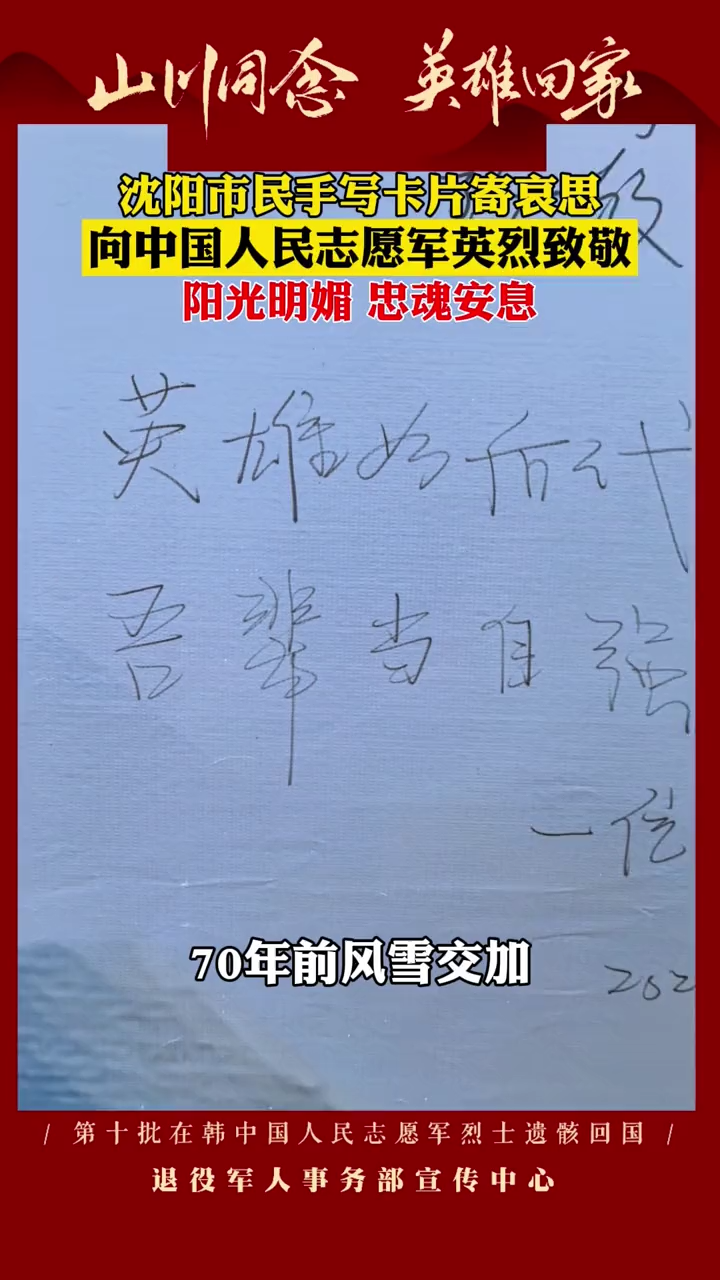 山川同念 英雄回家
沈阳市民手写卡片寄哀思
向中国人民志愿军英烈致敬
阳光明媚 忠魂安息
英雄 后代
吾辈当自强
一位
70年前风雪交加
202
/ 第十批在韩中国人民志愿军烈士遗骸回国 /
退役军人事务部宣传中心